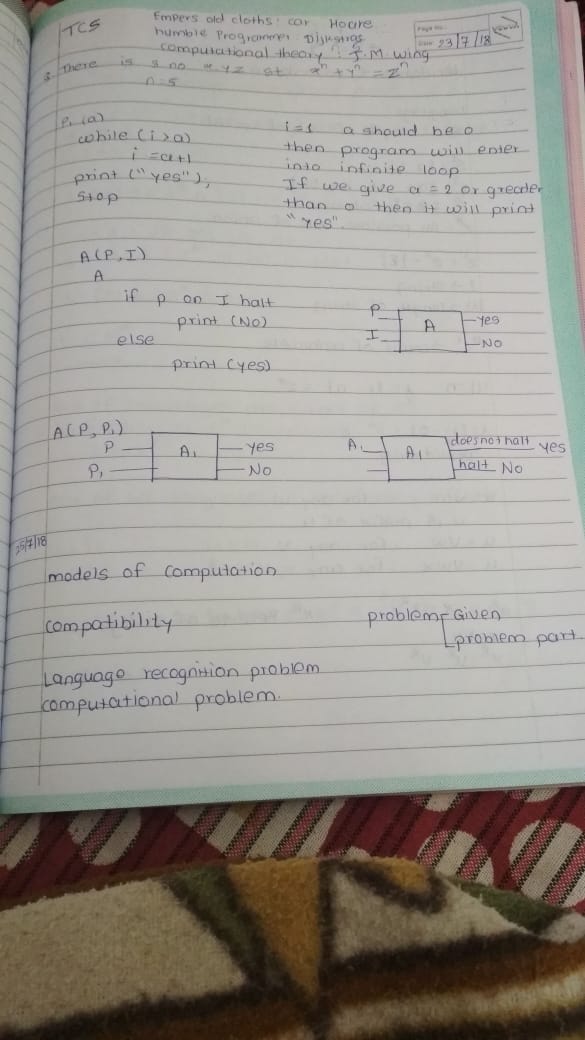 TCS
Empers old cloths: car Hoare
humble Programmer Dijkstras
computational theory : J.M. wing
Page No.
Date 23/7/18
3 there is 3 no x yz st x^n + y^n = z^n
n=5
P1 (a)
while (i>a)
i = a+1
print ("yes"),
stop
i=1 a should be 0
then program will enter
into infinite loop
If we give a = 2 or greater
than 0 then it will print
"yes".
A(P,I)
A
if P on I halt
print (No)
else
print (yes)
P
I
A
yes
No
A(P, P1)
P
P1
A1
yes
No
A1
A1
does not halt yes
halt No
25/7/18
models of computation
compatibility
problem Given
problem part
Language recognition problem
computational problem.